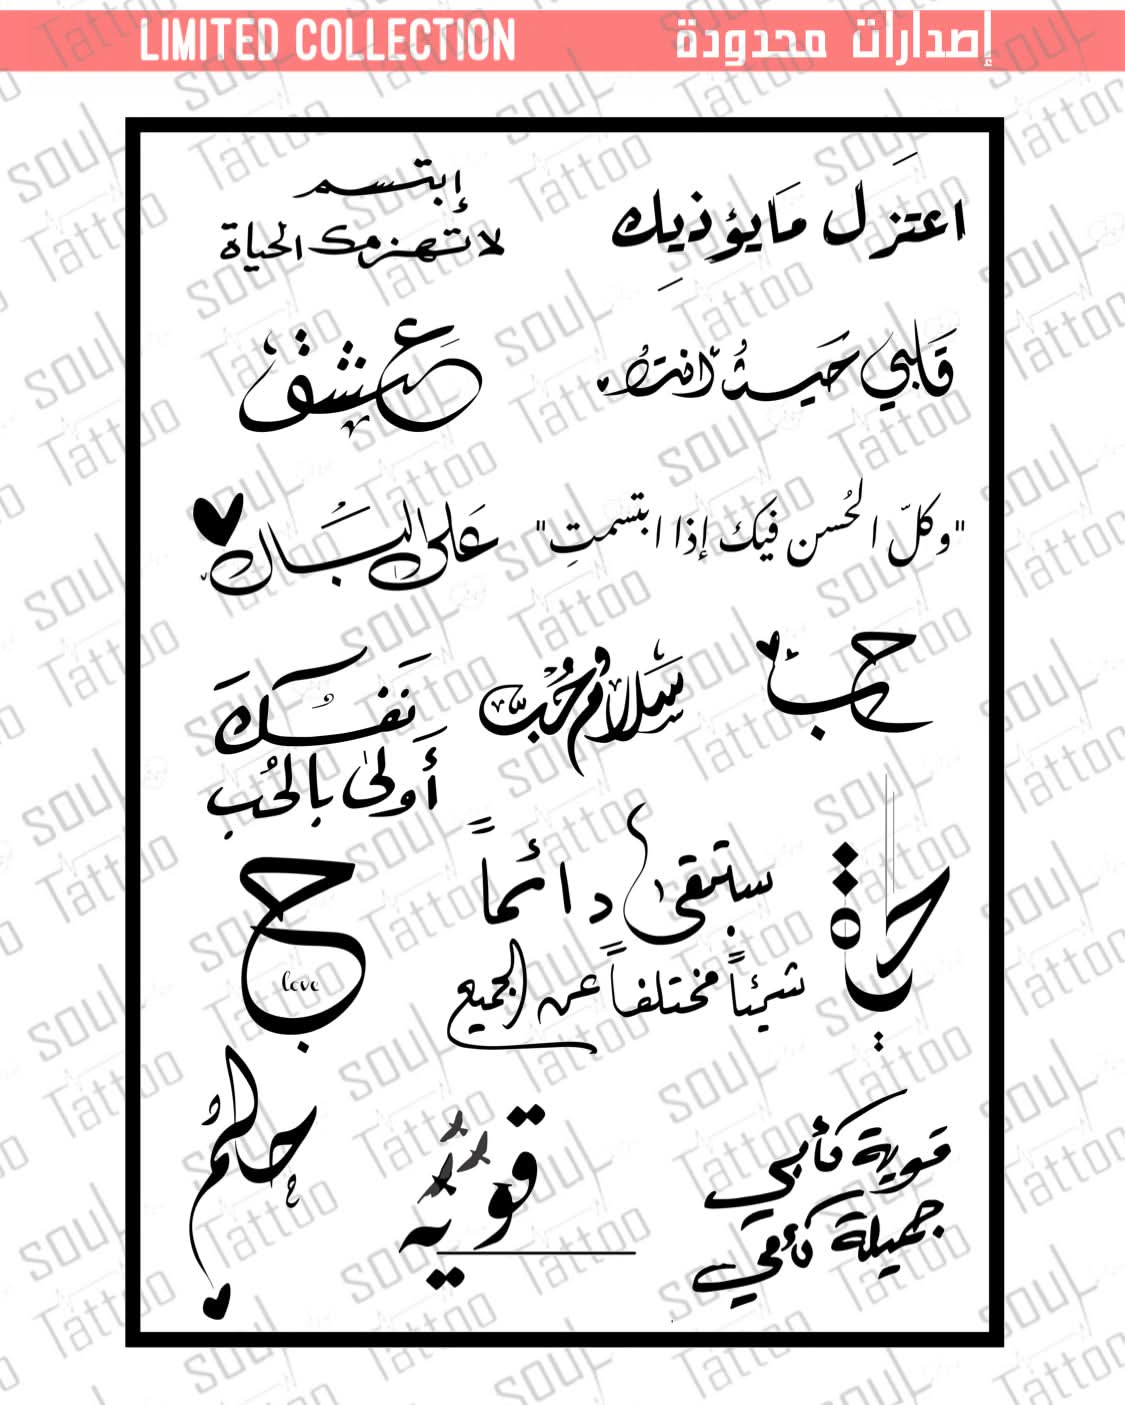 LIMITED COLLECTION
إصدارات محدودة
اعتزَل مَايؤذيِك
إبتسم
لاتهزمك الحياة
قَلبي حَيثُ انتَ
عشق
"وكلّ الحُسن فيك إذا ابتسمتِ"
عَلى البَال
حب
سَلام وحُبّ
نَفسُكَ
أَولىٰ بالحُب
ستبقىٰ دائماً
شيئاً مختلفاً عن الجميع
حرة
ح
love
حلمُ
قويّه
قوية كأبي
جميلة كأمي
SOUL
Tattoo